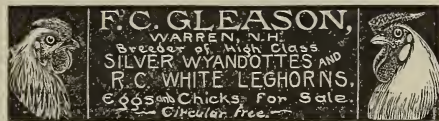 F. C. GLEASON,
WARREN, N.H.
Breeder of High Class
SILVER WYANDOTTES AND
R.C. WHITE LEGHORNS,
Eggs and Chicks For Sale.
Circular free.